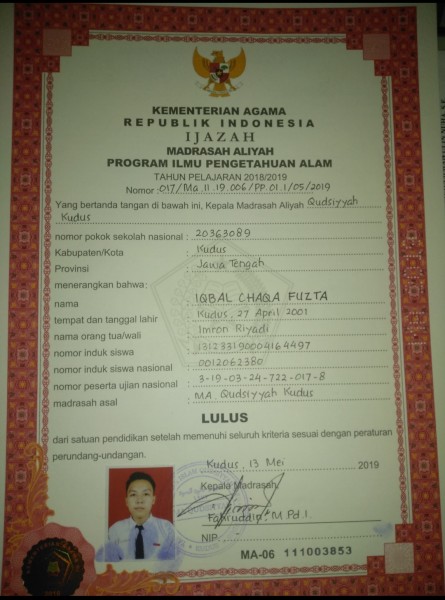 KEMENTERIAN AGAMA
REPUBLIK INDONESIA
IJAZAH
MADRASAH ALIYAH
PROGRAM ILMU PENGETAHUAN ALAM
TAHUN PELAJARAN 2018/2019
Nomor : 017/Ma.11.19.006/PP.01.1/05/2019
Yang bertanda tangan di bawah ini, Kepala Madrasah Aliyah Qudsiyyah
Kudus
nomor pokok sekolah nasional : 20363089
Kabupaten/Kota : Kudus
Provinsi : Jawa Tengah
menerangkan bahwa:
nama : IQBAL CHAQA FUZTA
tempat dan tanggal lahir : Kudus, 27 April 2001
nama orang tua/wali : Imron Riyadi
nomor induk siswa : 131233190004164497
nomor induk siswa nasional : 0012062380
nomor peserta ujian nasional : 3-19-03-24-722-017-8
madrasah asal : MA. Qudsiyyah Kudus
LULUS
dari satuan pendidikan setelah memenuhi seluruh kriteria sesuai dengan peraturan
perundang-undangan.
Kudus, 13 Mei 2019
Kepala Madrasah,
Fahruddin, M.Pd.I.
NIP. -
MA-06 111003853